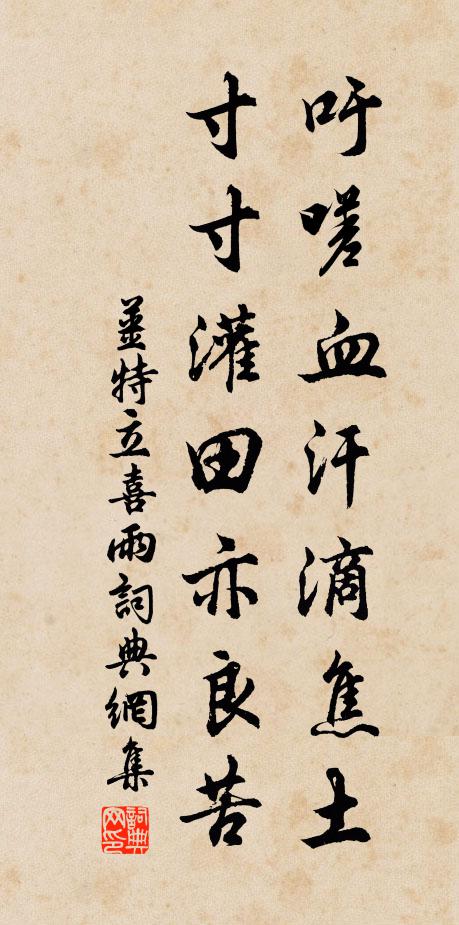 吁嗟血汗滴焦土
寸寸灌田亦良苦
姜特立喜雨詞典網集
詞典网印